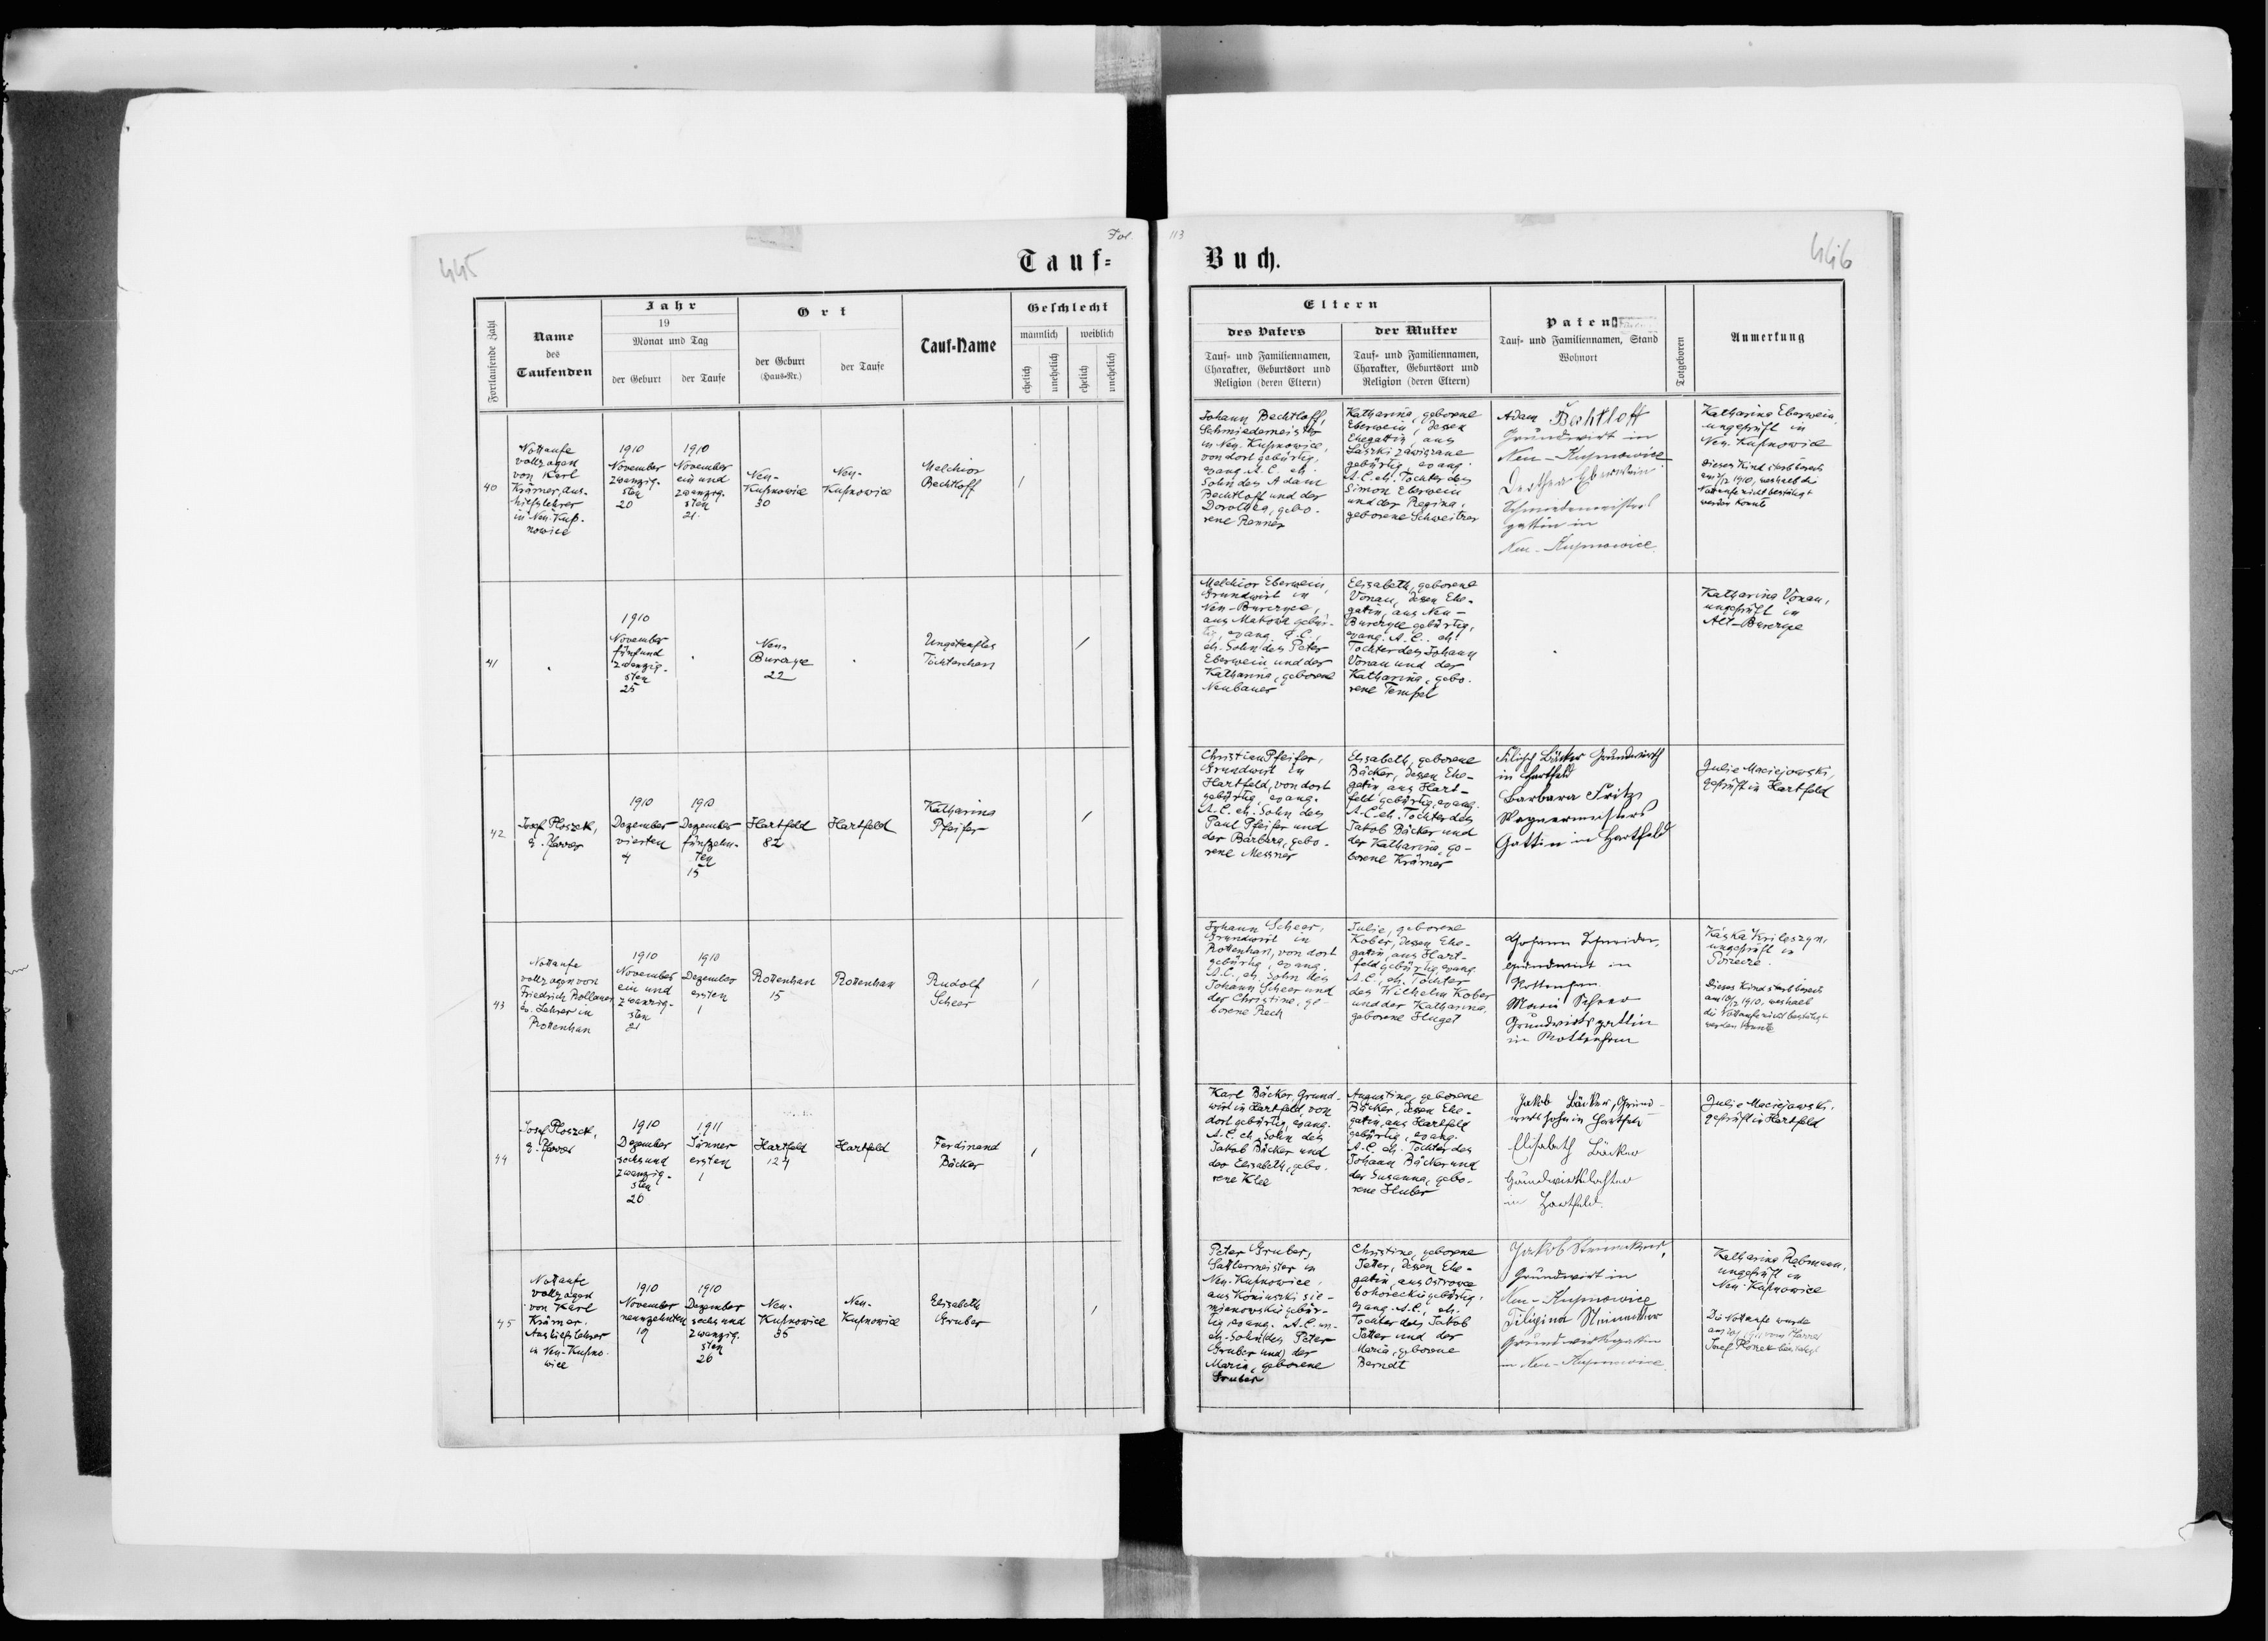 445
Fol.
113
446
Tauf=
Buch.
Fortlaufende Zahl
Name
des
Taufenden
Jahr
19
Monat und Tag
der Geburt
der Taufe
Ort
der Geburt
(Haus-Nr.)
der Taufe
Tauf-Name
Geschlecht
männlich
weiblich
ehelich
unehelich
ehelich
unehelich
Eltern
des Vaters
Tauf- und Familiennamen,
Charakter, Geburtsort und
Religion (deren Eltern)
der Mutter
Tauf- und Familiennamen,
Charakter, Geburtsort und
Religion (deren Eltern)
Paten
Tauf- und Familiennamen, Stand
Wohnort
Totgeboren
Anmerkung
40
Nottaufe
vollzogen
von Karl
Krämer, Aus-
hilfslehrer
in Neu-Kup-
nowice
1910
November
zwanzig-
sten
20
1910
November
ein und
zwanzig-
sten
21
Neu-
Kupnowice
30
Neu-
Kupnowice
Melchior
Bechtloff
1
Johann Bechtloff,
Schmiedemeister
in Neu-Kupnowice,
von dort gebürtig,
evang. A.C. eh.
Sohn des Adam
Bechtloff und der
Dorothea, gebo-
rene Renner
Katharina, geborene
Eberwein, dessen
Ehegattin, aus
Laszki zawiązane
gebürtig, evang.
A.C. eh. Tochter des
Simon Eberwein
und der Regina,
geborene Schweitzer
Adam Bechtloff
Grundwirt in
Neu-Kupnowice
Dorthea Eberwein
Schmiedemeisters
gattin in
Neu-Kupnowice.
Katharina Eberwein,
ungeprüft in
Neu-Kupnowice
Dieses Kind starb bereits
am 1/12 1910, weshalb die
Nottaufe nicht bestätigt
werden konnte
41
1910
November
fünfund
zwanzig-
sten
25
Neu-
Burczyce
22
Ungetauftes
Töchterchen
/
Melchior Eberwein,
Grundwirt in
Neu-Burczyce,
aus Makowa gebür-
tig, evang. A.C.,
eh. Sohn des Peter
Eberwein und der
Katharina, geborene
Neubauer
Elisabeth, geborene
Vonau, dessen Ehe-
gatin, aus Neu-
Burczyce gebürtig,
evang. A.C. eh.
Tochter des Johann
Vonau und der
Katharina, gebo-
rene Tempel
Katharina Vonau,
ungeprüft in
Alt-Burczyce
42
Josef Ploszek,
ev. Pfarrer
1910
Dezember
vierten
4
1910
Dezember
fünfzehn-
ten
15
Hartfeld
82
Hartfeld
Katharina
Pfeifer
/
Christian Pfeifer,
Grundwirt in
Hartfeld, von dort
gebürtig, evang.
A.C. eh. Sohn des
Paul Pfeifer und
der Barbara, gebo-
rene Messner
Elisabeth, geborene
Bäcker, dessen Ehe-
gatin, aus Hart-
feld gebürtig, evang.
A.C. eh. Tochter des
Jakob Bäcker und
der Katharina, ge-
borene Krämer
Filipp Bäcker Grundwirth
in Hartfeld
Barbara Fritz
Wagnermeisters
Gattin in Hartfeld
Julie Maciejowski,
geprüft in Hartfeld
43
Nottaufe
vollzogen von
Friedrich Rollauer
ev. Lehrer in
Rottenhan
1910
November
ein und
zwanzig-
sten
21
1910
Dezember
ersten
1
Rottenhan
15
Rottenhan
Rudolf
Scheer
/
Johann Scheer,
Grundwirt in
Rottenhan, von dort
gebürtig, evang.
A.C., eh. Sohn des
Johann Scheer und
der Christine, ge-
borene Rech
Julie, geborene
Kober, dessen Ehe-
gatin, aus Hart-
feld gebürtig, evang.
A.C., eh. Tochter
des Wilhelm Kober
und der Katharina,
geborene Huget
Johann Schneider,
Grundwirt in
Rottenhan
Maria Scheer
Grundwirtsgattin
in Rottenhan
Kaśka Krileszyn,
ungeprüft in
Porzecze.
Dieses Kind starb bereits
am 10/12 1910, weshalb
die Nottaufe nicht bestätigt
werden konnte
44
Josef Ploszek,
ev. Pfarrer
1910
Dezember
sechsund
zwanzig-
sten
26
1911
Jänner
ersten
1
Hartfeld
124
Hartfeld
Ferdinand
Bäcker
/
Karl Bäcker, Grund-
wirt in Hartfeld, von
dort gebürtig, evang.
A.C. eh. Sohn des
Jakob Bäcker und
der Elisabeth, gebo-
rene Klee
Augustine, geborene
Bäcker, dessen Ehe-
gatin, aus Hartfeld
gebürtig, evang.
A.C. eh. Tochter des
Johann Bäcker und
der Susanna, gebo-
rene Huber
Jakob Bäcker, Grund-
wirtssohn in Hartfeld
Elisabeth Bäcker
Grundwirtstochter
in Hartfeld.
Julie Maciejowski,
geprüft in Hartfeld
45
Nottaufe
vollzogen
von Karl
Krämer,
Aushilfslehrer
in Neu-Kupno-
wice
1910
November
neunzehnten
19
1910
Dezember
sechsund
zwanzig-
sten
26
Neu-
Kupnowice
35
Neu-
Kupnowice
Elisabeth
Gruber
/
Peter Gruber,
Sattlermeister in
Neu-Kupnowice,
aus Koniuszki sie-
mianowskie gebür-
tig, evang. A.C. un-
eh. Sohn (des Peter
Gruber und) der
Maria, geborene
Gruber
Christine, geborene
Jetter, dessen Ehe-
gatin, aus Ostrowce
pohoreckie gebürtig,
evang. A.C., eh.
Tochter des Jakob
Jetter und der
Maria, geborene
Berndt
Jakob
Grundwirt in
Neu-Kupnowice
Filipina
Grundwirtsgattin
in Neu-Kupnowice
Katharina Rebmann,
ungeprüft in
Neu-Kupnowice
Die Nottaufe wurde
vom Pfarrer
Josef Ploszek bestätigt